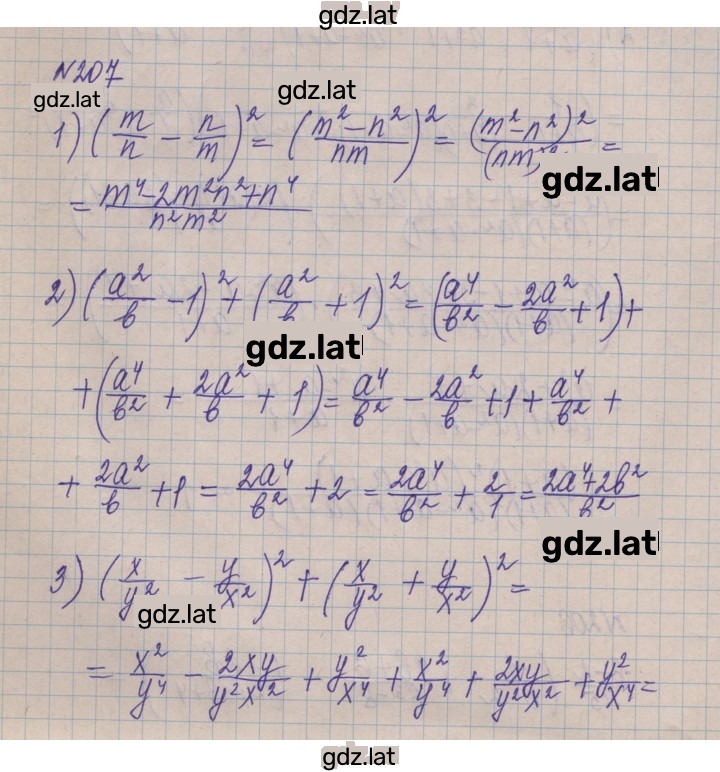 gdz.lat
N207
gdz.lat
gdz.lat
1) (m/n - n/m)² = ((m² - n²)/nm)² = (m² - n²)²/(nm)² =
gdz.lat
= (m⁴ - 2m²n² + n⁴)/n²m²
2) (a²/b - 1)² + (a²/b + 1)² = (a⁴/b² - 2a²/b + 1) +
gdz.lat
+ (a⁴/b² + 2a²/b + 1) = a⁴/b² - 2a²/b + 1 + a⁴/b² +
+ 2a²/b + 1 = 2a⁴/b² + 2 = 2a⁴/b² + 2/1 = (2a⁴+2b²)/b²
gdz.lat
3) (x/y² - y/x²)² + (x/y² + y/x²)² =
gdz.lat
= x²/y⁴ - 2xy/y²x² + y²/x⁴ + x²/y⁴ + 2xy/y²x² + y²/x⁴ =
gdz.lat